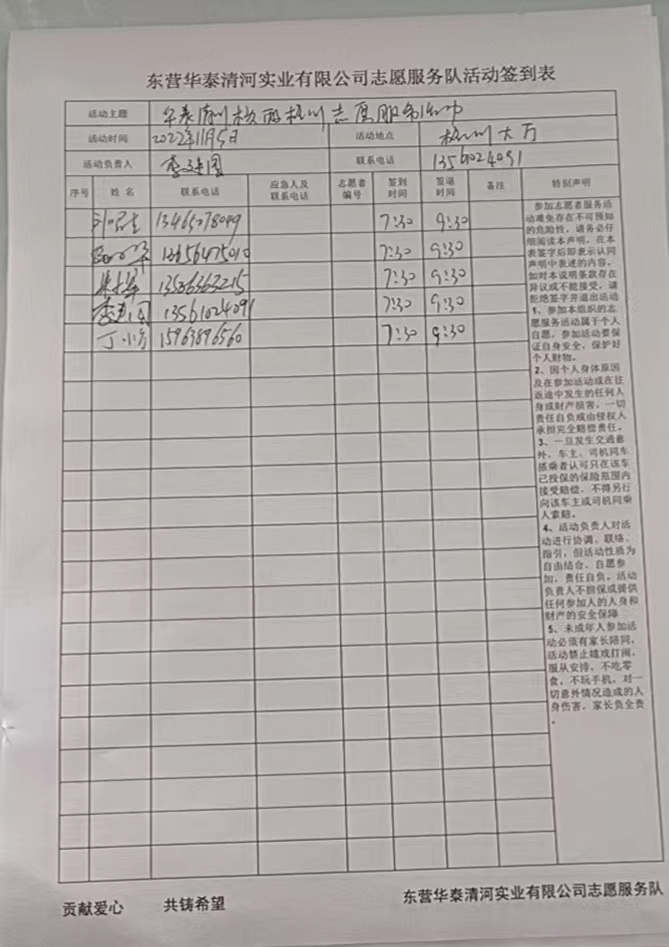 东营华泰清河实业有限公司志愿服务队活动签到表
活动主题 志愿服务活动
活动时间 2022年11月5日 活动地点
活动负责人 李建国 联系电话 13561024091
序号 姓名 联系电话 应急人及联系电话 志愿者编号 签到时间 签退时间 备注 特别声明
13465078099 7:30 9:30
13656475010 7:30 9:30
13506363215 7:30 9:30
李建国 13561024091 7:30 9:30
丁小芳 15963896560 7:30 9:30
参加志愿者服务活
动难免存在不可预知
的危险性，请务必仔
细阅读本声明，在本
表签字后即表示认同
声明中表述的内容。
如对本说明条款存在
异议或不能接受，请
拒绝签字并退出活动
1、参加本组织的志
愿服务活动属于个人
自愿，参加活动要保
证自身安全，保护好
个人财物。
2、因个人身体原因
及在参加活动或在往
返途中发生的任何人
身或财产损害，一切
责任自负或由侵权人
承担完全赔偿责任。
3、一旦发生交通意
外，车主、司机同车
搭乘者认可只在该车
已投保的保险范围内
接受赔偿，不得另行
向该车主或司机同乘
人索赔。
4、活动负责人对活
动进行协调、联络、
指引，但活动性质为
自由结合，自愿参
加，责任自负。活动
负责人不担保或提供
任何参加人的人身和
财产的安全保障
5、未成年人参加活
动必须有家长陪同，
活动禁止嬉戏打闹，
服从安排，不吃零
食，不玩手机，对一
切意外情况造成的人
身伤害，家长负全责
。
贡献爱心 共铸希望 东营华泰清河实业有限公司志愿服务队